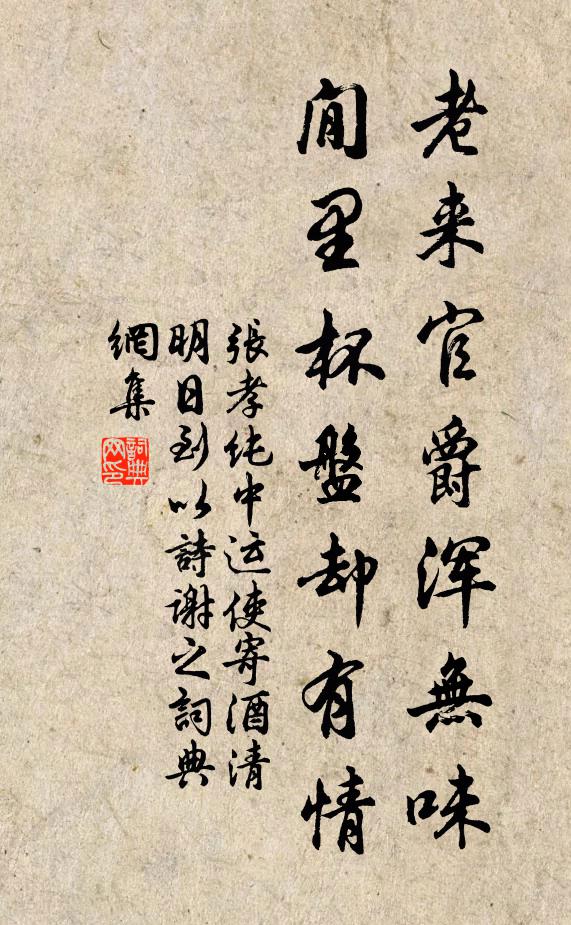 老来官爵浑無味
闲里杯盤却有情
張孝纯中运使寄酒清
明日到以詩谢之詞典
網集
詞典
网印